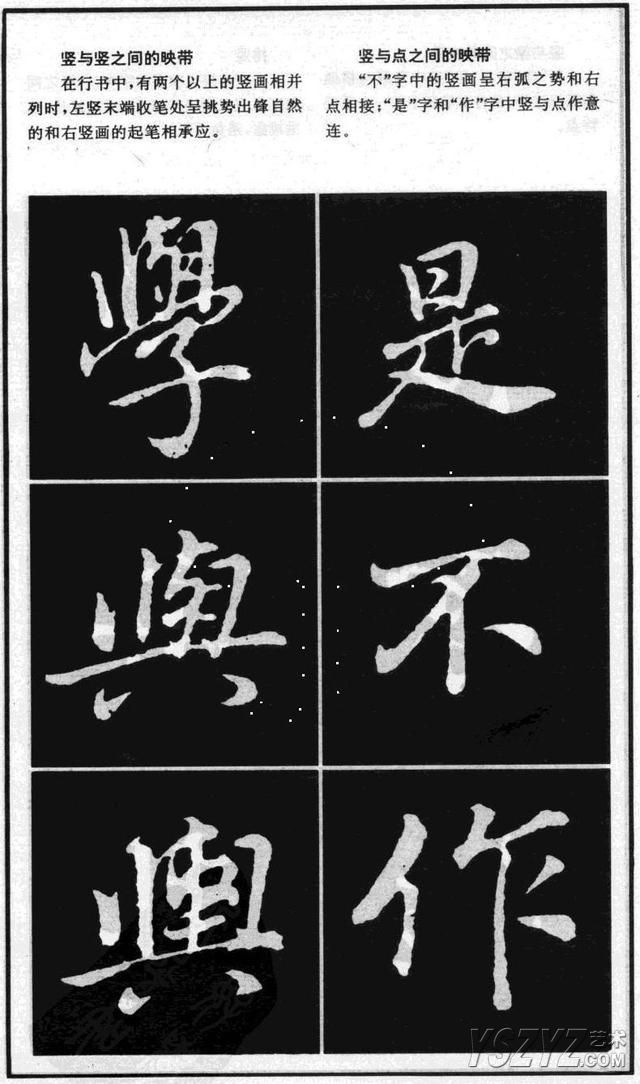 竖与竖之间的映带
在行书中,有两个以上的竖画相并
列时,左竖末端收笔处呈挑势出锋自然
的和右竖画的起笔相承应。
竖与点之间的映带
“不”字中的竖画呈右弧之势和右
点相接;“是”字和“作”字中竖与点作意
连。
學
與
輿
是
不
作
YSZYZ艺术
.COM